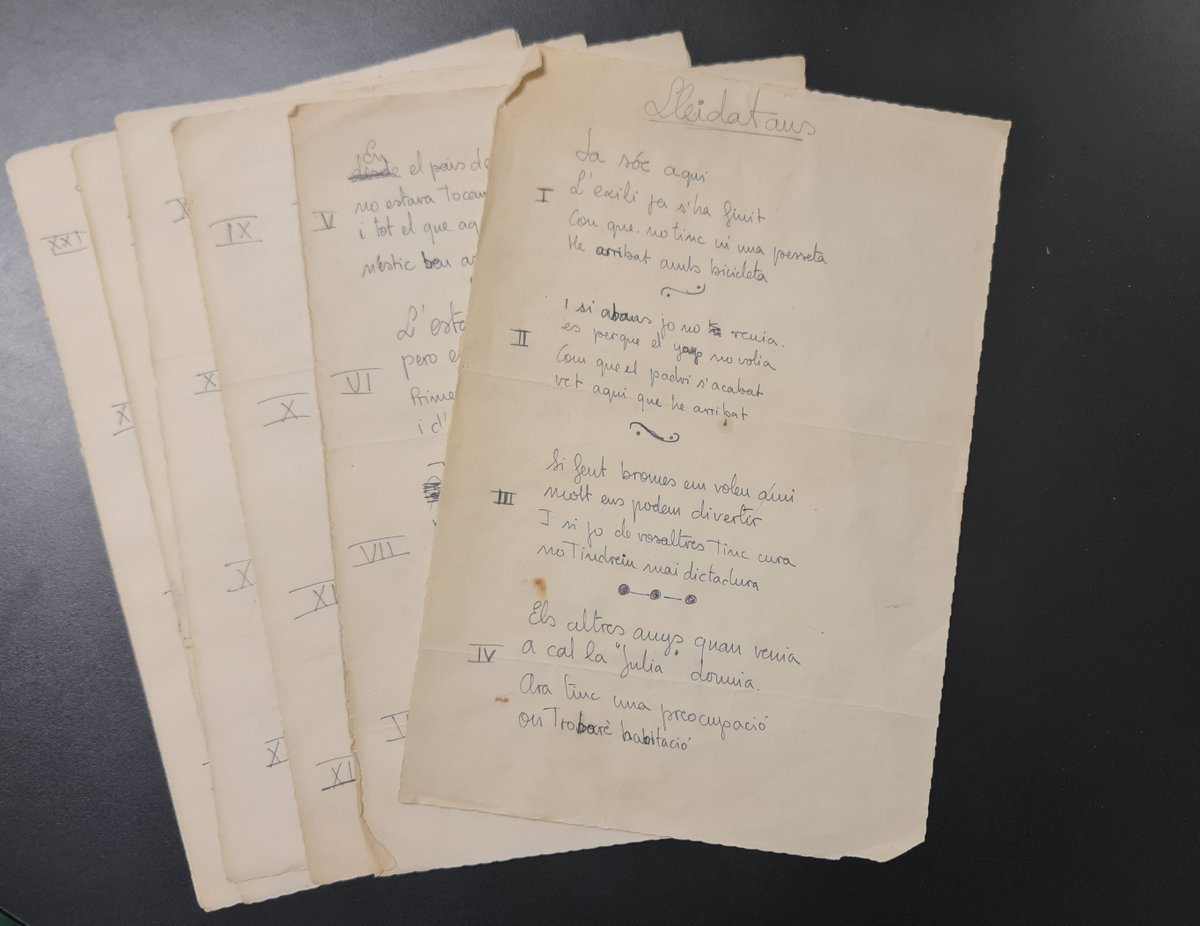 Lleidatans
Ja sóc aqui
I
L'exili ja s'ha finit
Com que no tinc ni una pesseta
He arribat amb bicicleta
I si abans jo no venia.
II
es perque el yayo no volia
Com que el padri s'acabat
vet aqui que he arribat
Si fent bromes em voleu aqui
III
molt ens podem divertir
I si jo de vosaltres tinc cura
no tindreu mai dictadura
Els altres anys quan venia
IV
a cal la "Julia" dormia.
Ara tinc una preocupació
on trobaré habitació
En
desde el pais de
V
no estava tocan
i tot el que aq
n'estic ben as
L'esta
pero e
VI
Prime
i d'
VII
IX
X
XI
XI
XXI
X
X
X
X